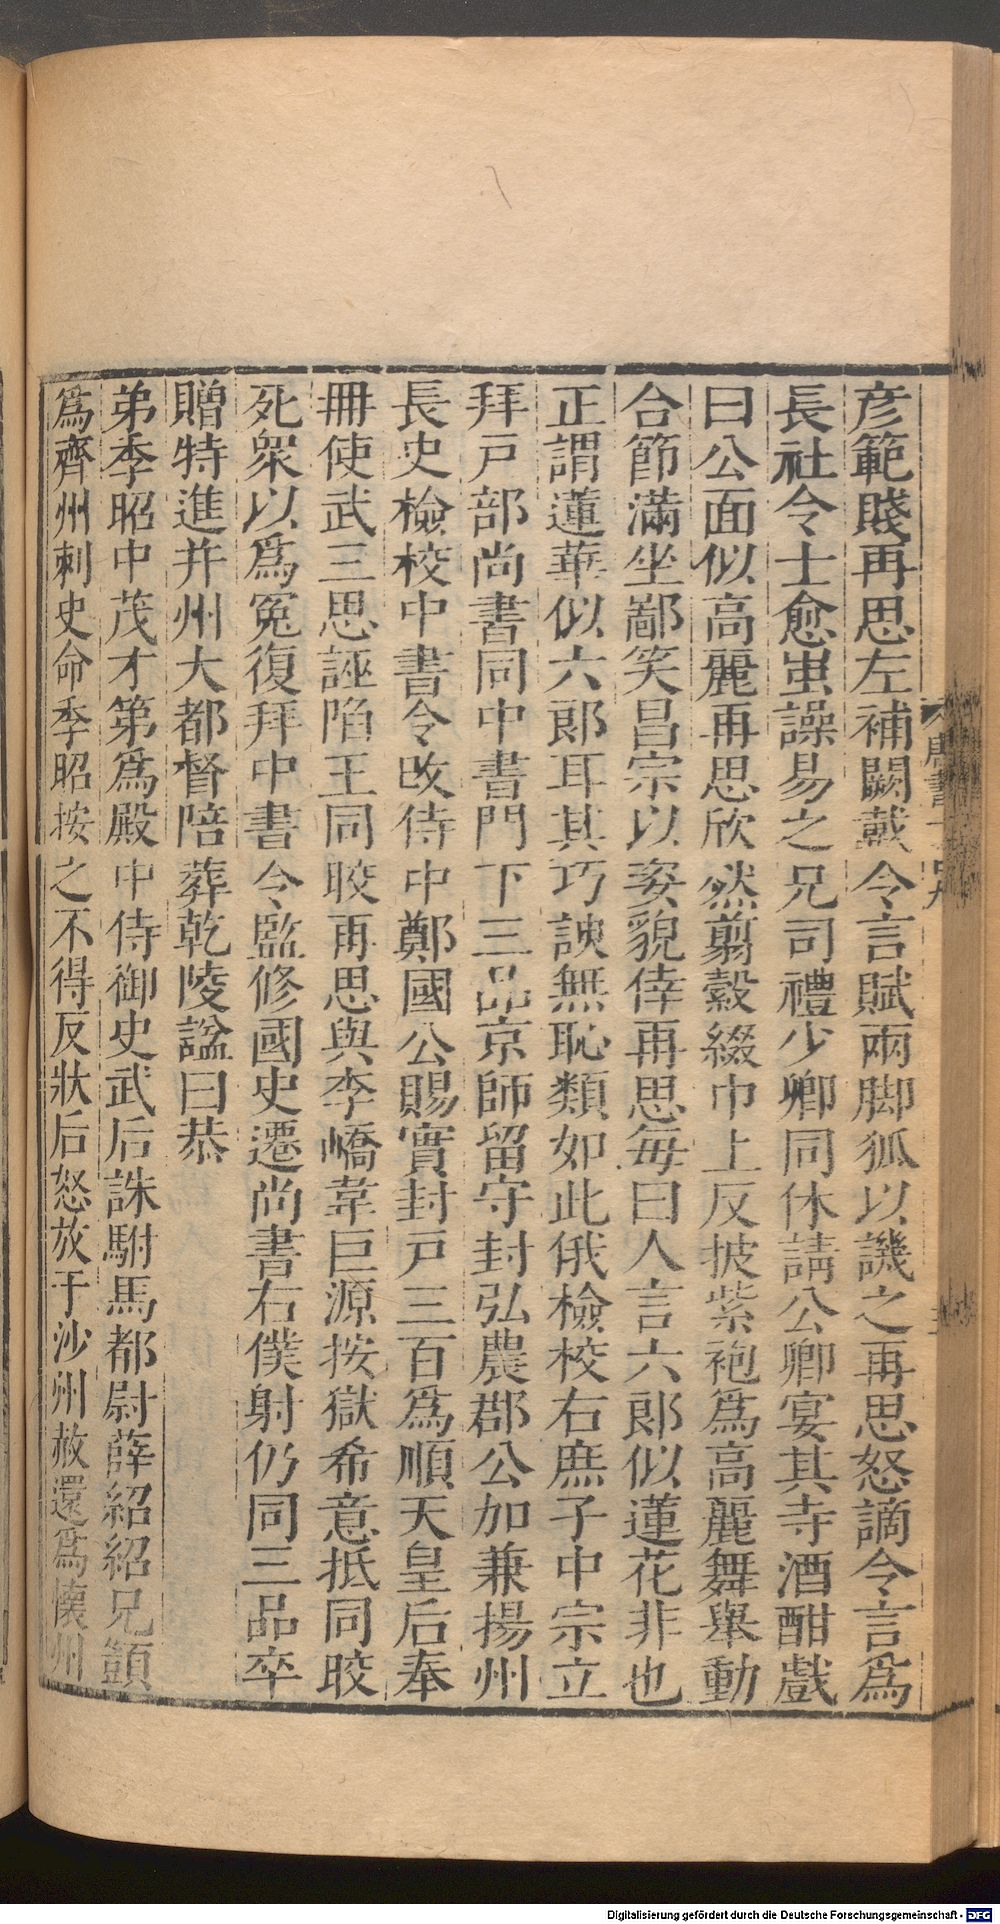 彦範賤再思左補闕戴令言賦兩脚狐以譏之再思怒謫令言爲
長社令士愈蚩譟易之兄司禮少卿同休請公卿宴其寺酒酣戲
曰公面似高麗再思欣然翦縠綴巾上反披紫袍爲高麗舞舉動
合節滿坐鄙笑昌宗以姿貌倖再思每曰人言六郎似蓮花非也
正謂蓮華似六郎耳其巧諛無恥類如此俄檢校右庶子中宗立
拜戸部尚書同中書門下三品京師留守封弘農郡公加兼揚州
長史檢校中書令改侍中鄭國公賜實封戸三百爲順天皇后奉
冊使武三思誣陷王同晈再思與李嶠韋巨源按獄希意抵同晈
死衆以爲冤復拜中書令監修國史遷尚書右僕射仍同三品卒
贈特進并州大都督陪葬乾陵諡曰恭
弟季昭中茂才第爲殿中侍御史武后誅駙馬都尉薛紹紹兄顗
爲齊州刺史命季昭按之不得反狀后怒放于沙州赦還爲懷州
Digitalisierung gefördert durch die Deutsche Forschungsgemeinschaft - DFG